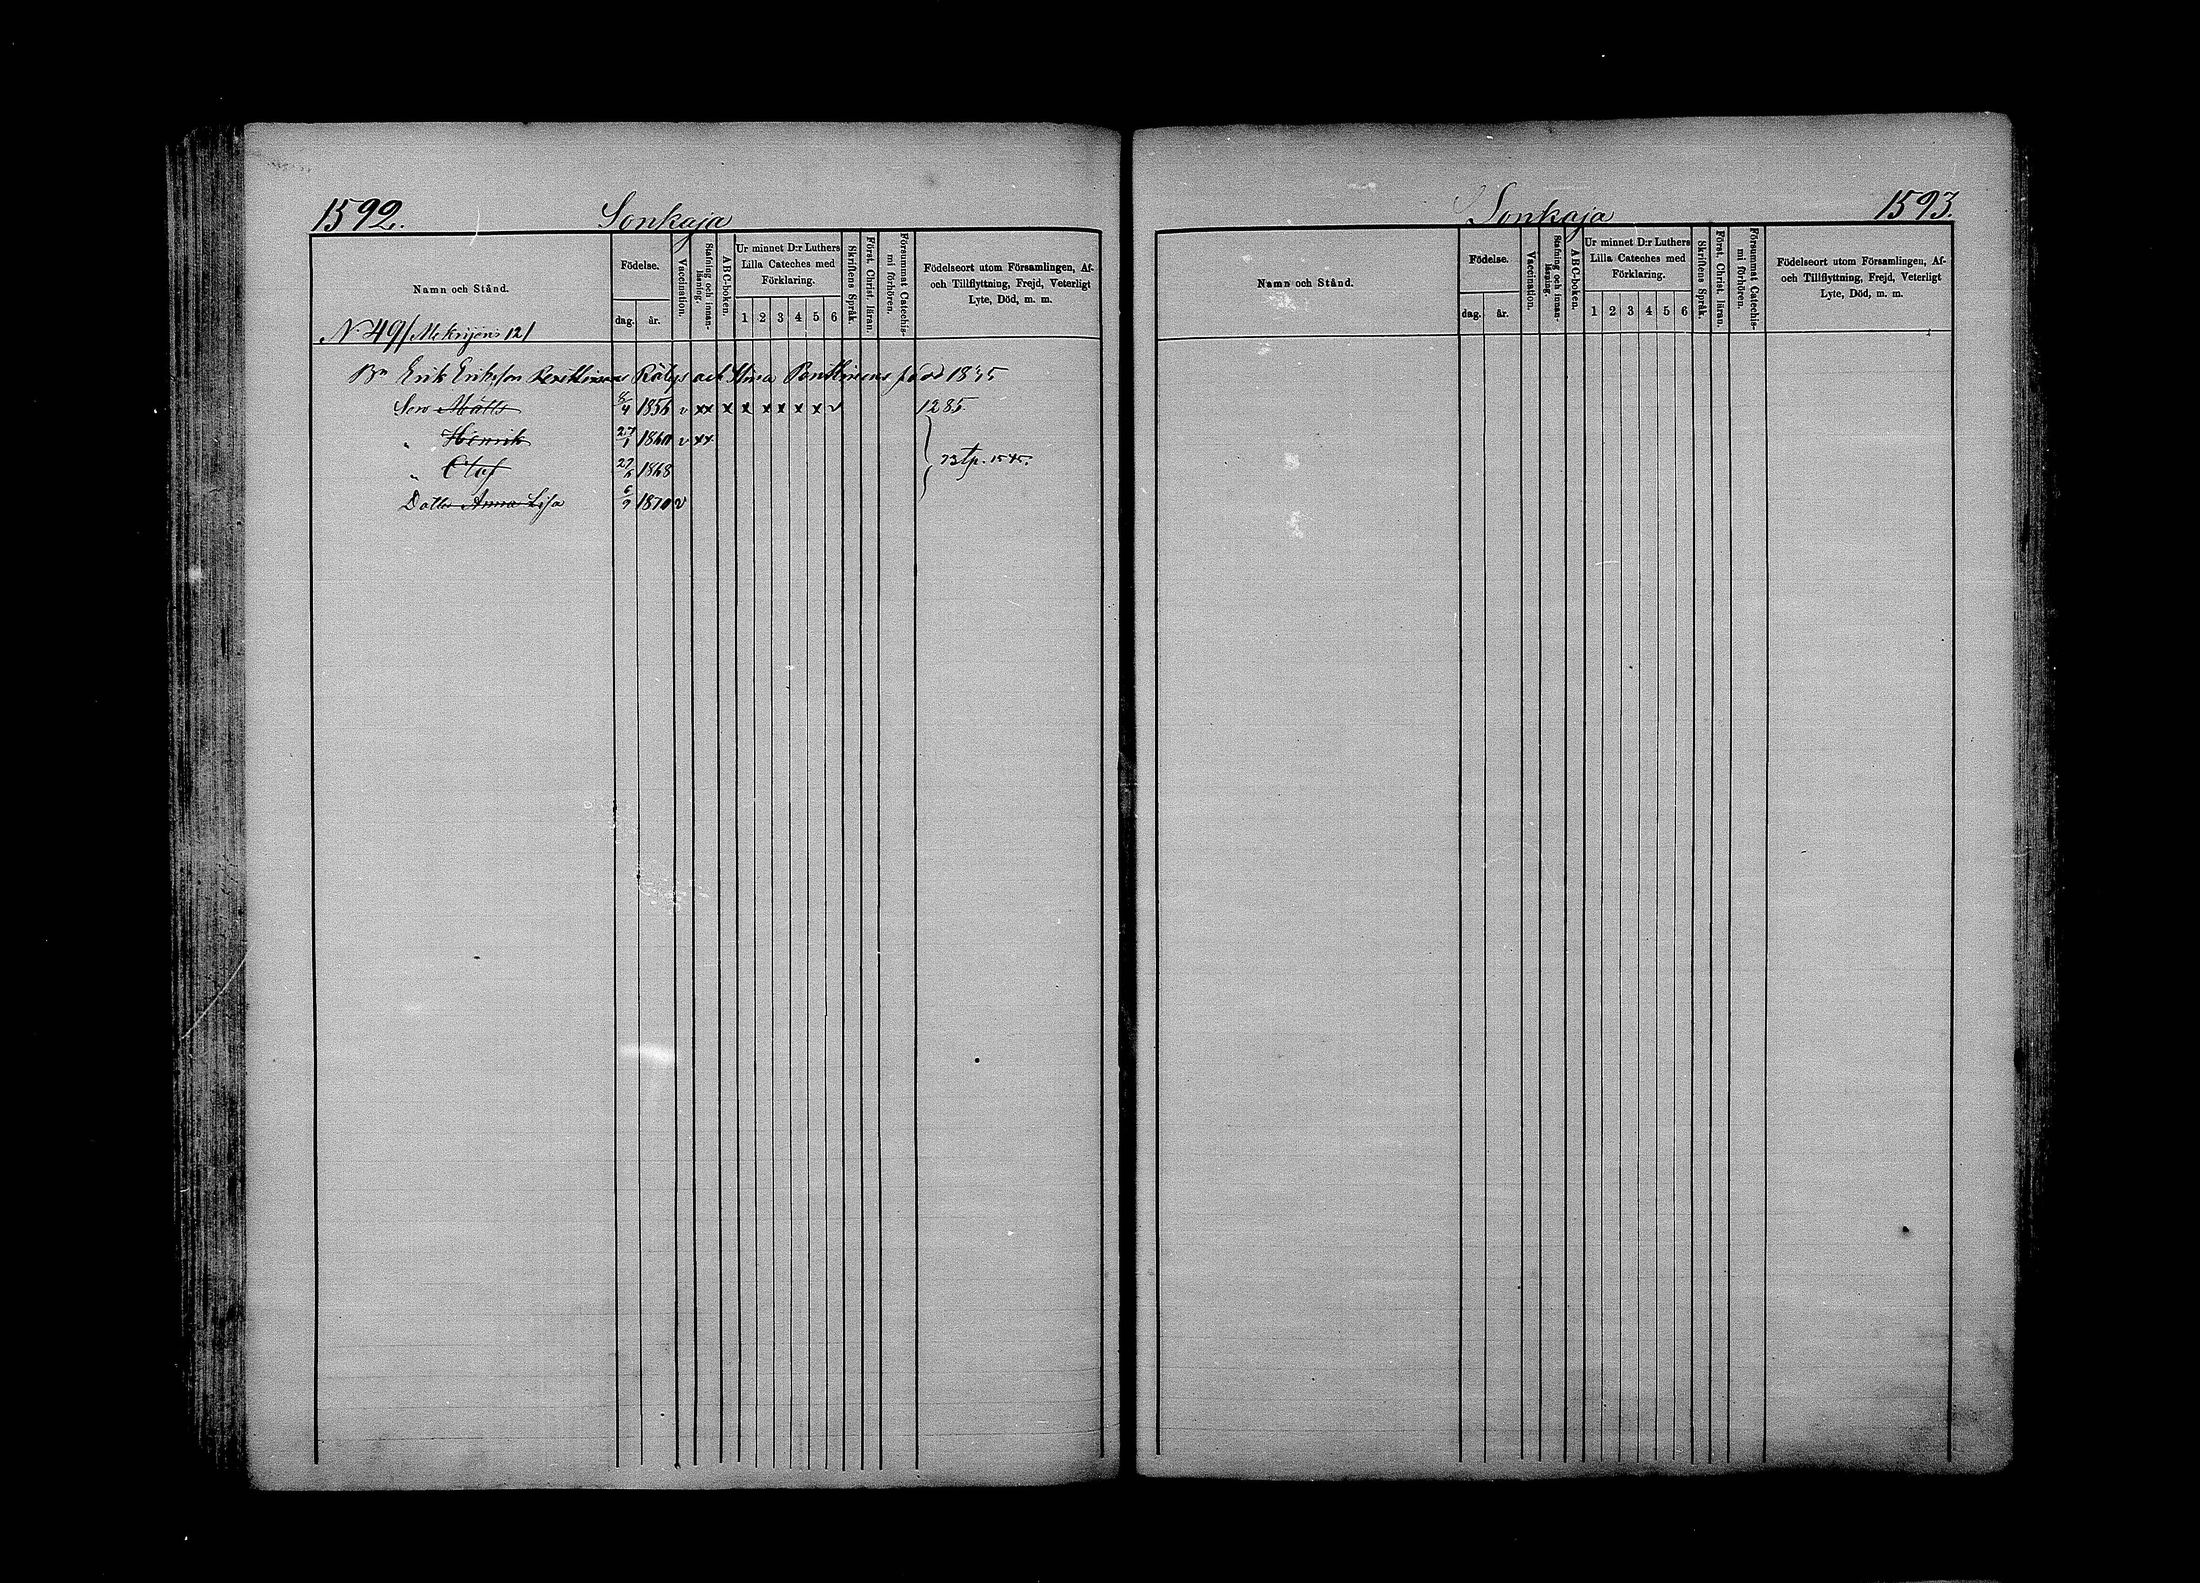 1592.
Sonkaja
Namn och Stånd.
Födelse.
dag. år.
Vaccination.
Stafning och innanläsning.
ABC-boken.
Ur minnet D:r Luthers
Lilla Cateches med
Förklaring.
1 2 3 4 5 6
Skriftens Språk.
Först. Christ. läran.
Försummat Catechis-
mi förhören.
Födelseort utom Församlingen, Af-
och Tillflyttning, Frejd, Veterligt
Lyte, Död, m. m.
No 49/
Bn Erik Eriksson och Stina född 1835
Son Matts 8/4 1856 v xx x x x x x x v 1285.
" Henrik 27/1 1860 v xx
" Olof 1868
Dotter Anna Lisa 6/9 1870 v
Sonkaja
1593.
Namn och Stånd.
Födelse.
dag. år.
Vaccination.
Stafning och innan-
läsning.
ABC-boken.
Ur minnet D:r Luthers
Lilla Cateches med
Förklaring.
1 2 3 4 5 6
Skriftens Språk.
Först. Christ. läran.
Försummat Catechis-
mi förhören.
Födelseort utom Församlingen, Af-
och Tillflyttning, Frejd, Veterligt
Lyte, Död, m. m.